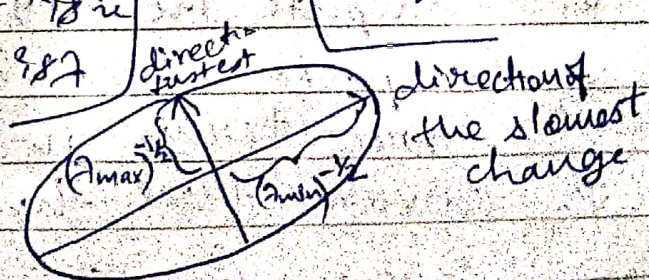 directio
fastest
direction of
the slowest
change
(λmax)^-½
(λmin)^-½